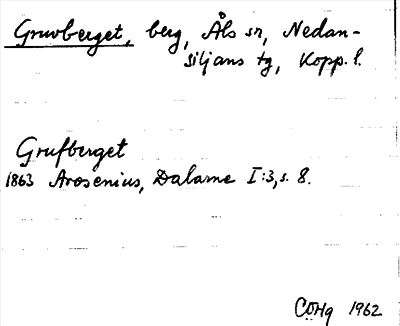 Gruvberget, berg, Åls sn, Nedan-
siljans tg, Kopp. l.
Grufberget
1863 Arosenius, Dalarne I:3, s. 8.
COHg 1962